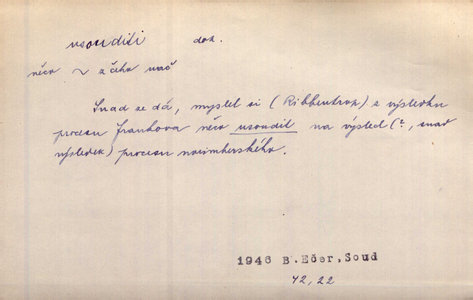 usouditi dok.
něco ~ z čeho nač
Snad se dá, myslel si (Ribbentrop) z výsledku
procesu Frankova něco usoudit na výsled (?, snad
výsledek) procesu norimberského.
1946 B. Ečer, Soud
42,22